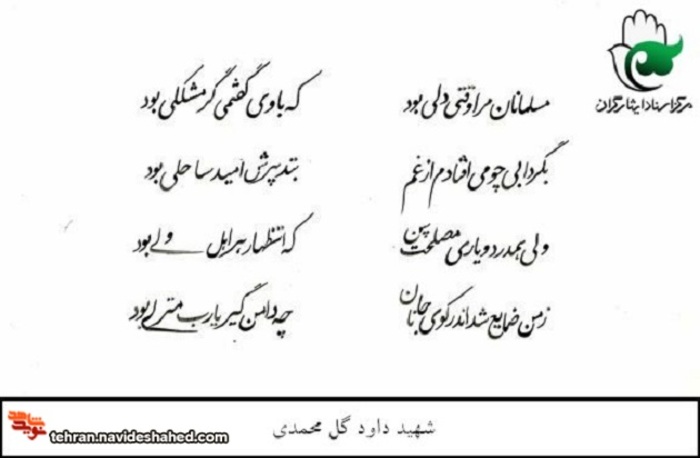 مرکز اسناد ایثارگران
مسلمانان مرا وقتی دلی بود که با وی گفتمی گر مشکلی بود
بگردابی چو می افتادم از غم بتدبیرش امید ساحلی بود
ولی همدرد و یاری مصلحت بین که انتظهار هر اهل ولی بود
زمن ضایع شد اندر کوی جانان چه دامن گیر یارب منزلی بود
شهید داود گل محمدی
نوید شاهد
tehran.navideshahed.com